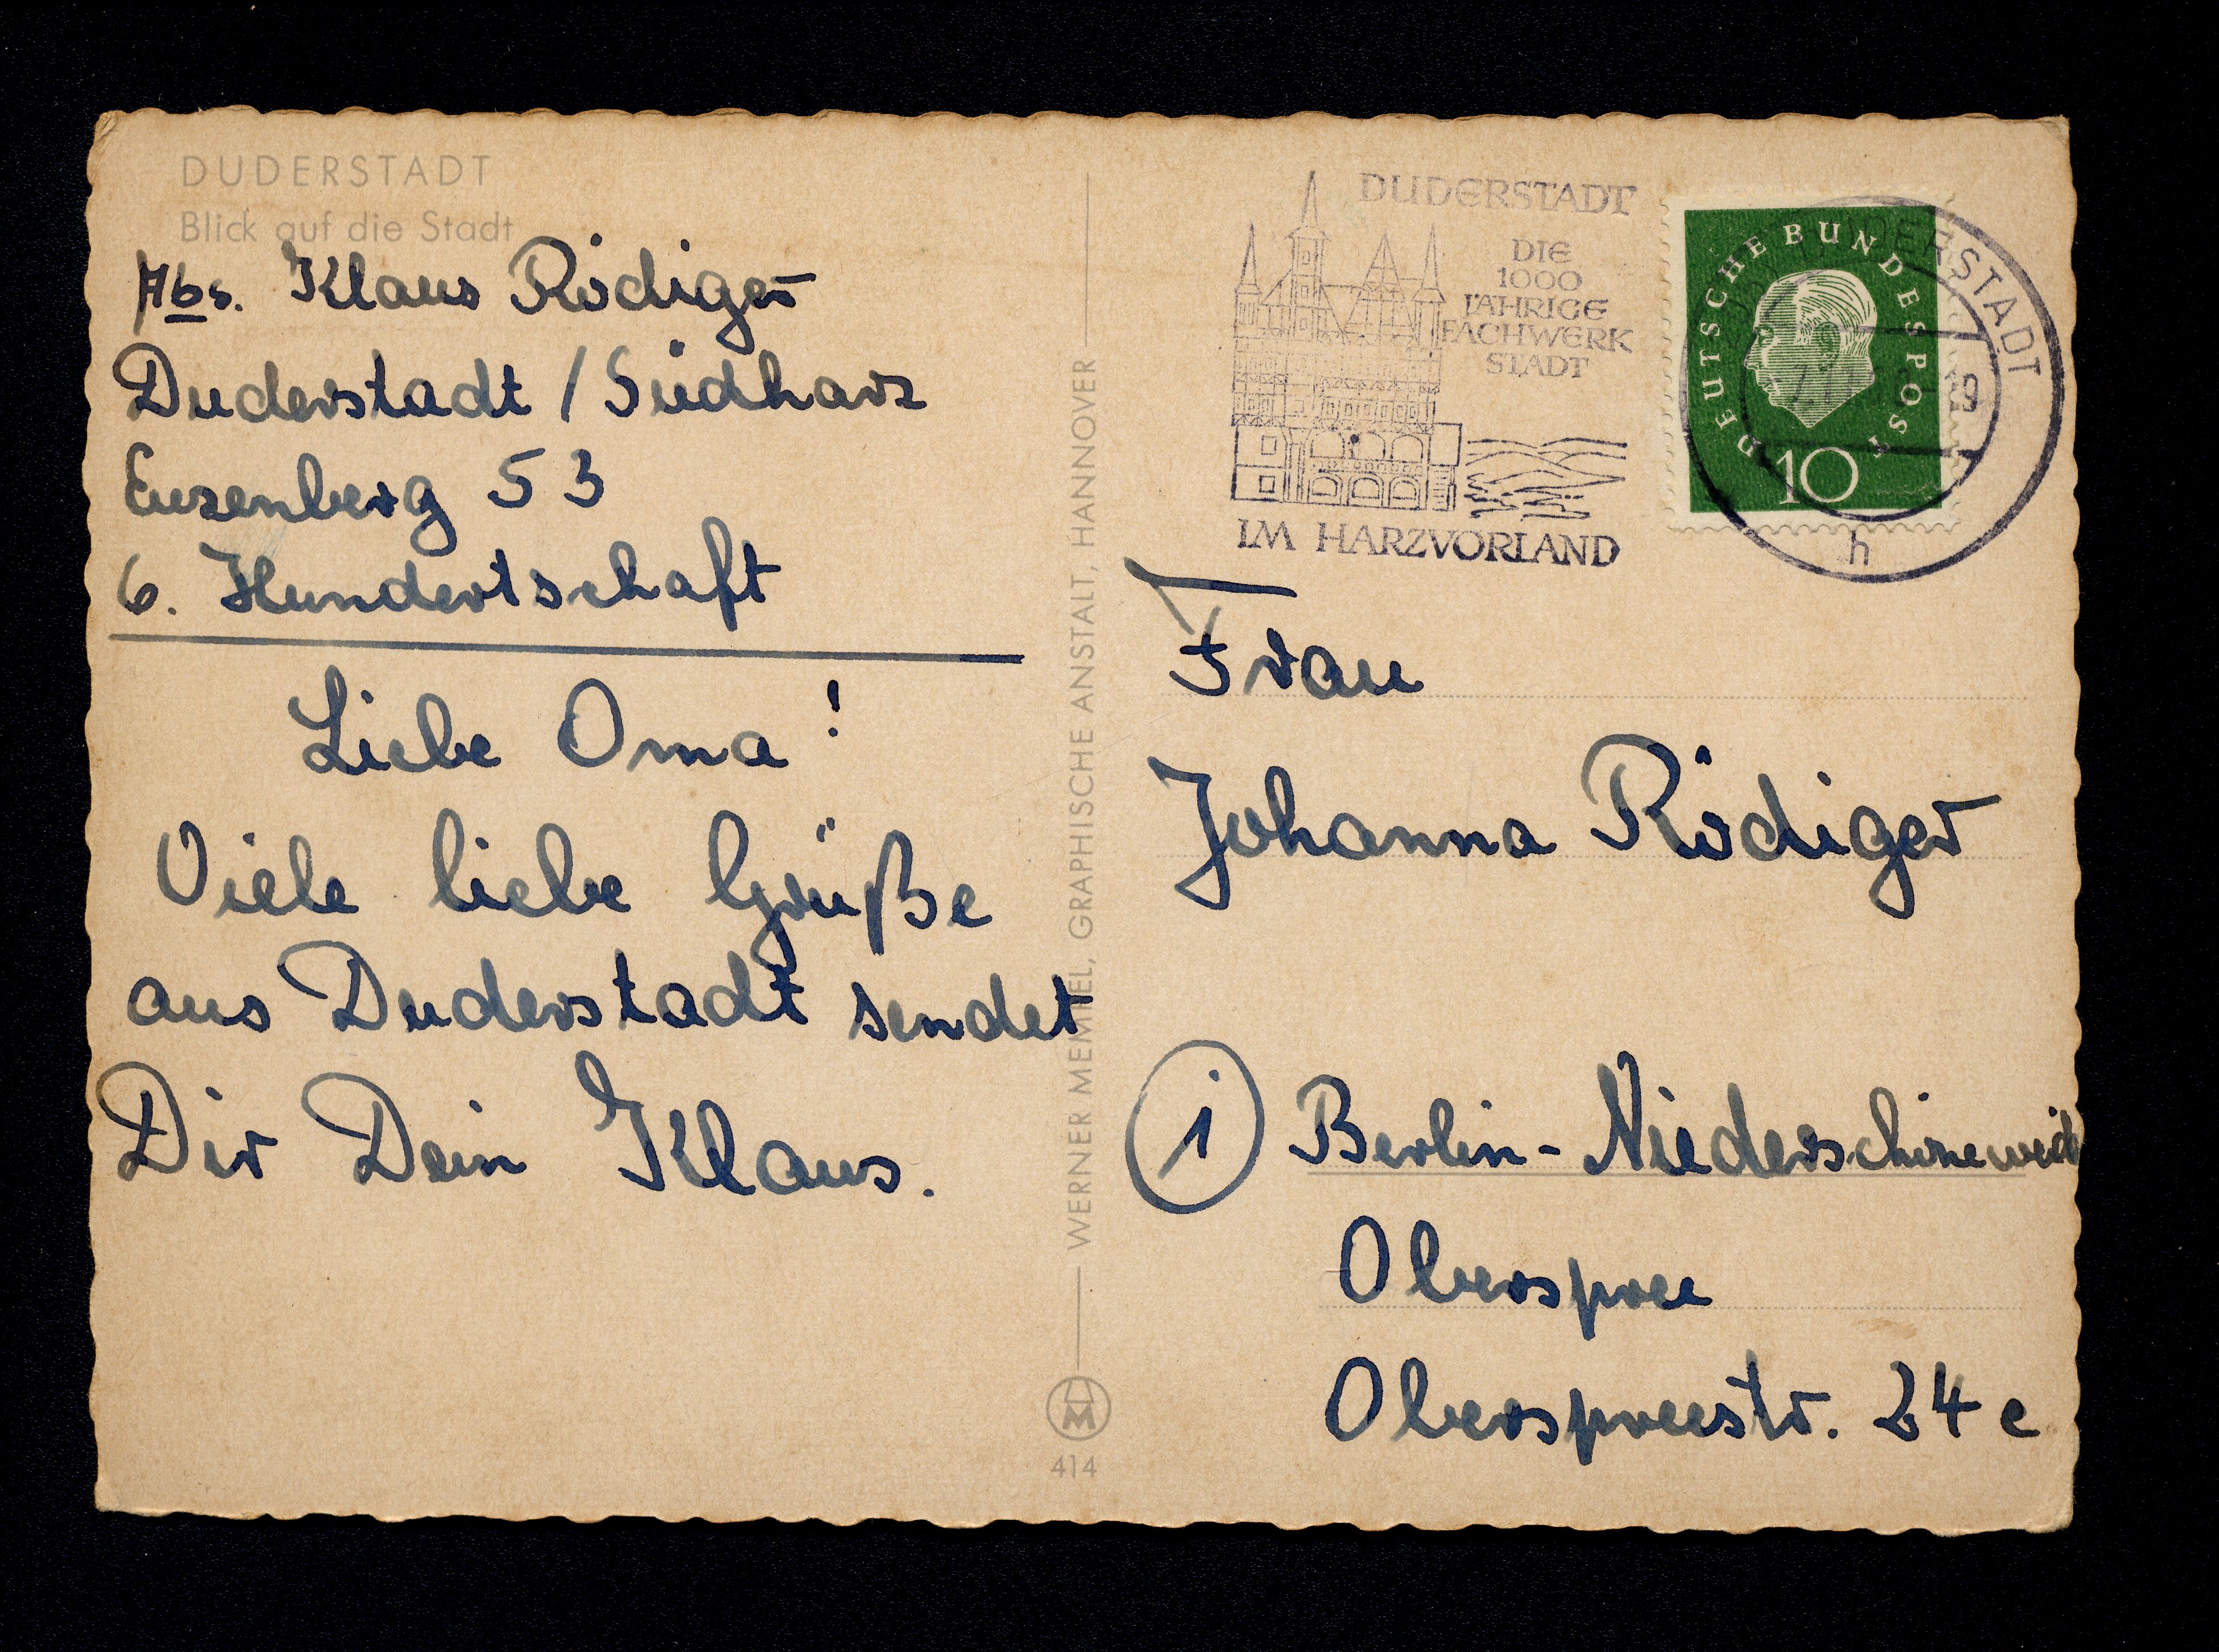 DUDERSTADT
Blick auf die Stadt
Abs. Klaus Rödiger
Duderstadt / Südharz
Euzenberg 53
6. Hundertschaft
Liebe Oma!
Viele liebe Grüße
aus Duderstadt sendet
Dir Dein Klaus.
WERNER MEMMEL, GRAPHISCHE ANSTALT, HANNOVER
414
DUDERSTADT
DIE
1000
JÄHRIGE
FACHWERK
STADT
IM HARZVORLAND
DEUTSCHE BUNDESPOST
10
DUDERSTADT
h
Frau
Johanna Rödiger
1 Berlin-Niederschöneweide
Oberspree
Oberspreestr. 24 e